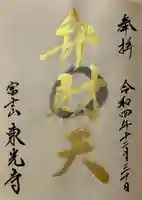 奉拝
令和四年十二月三十日
弁財天
東光寺